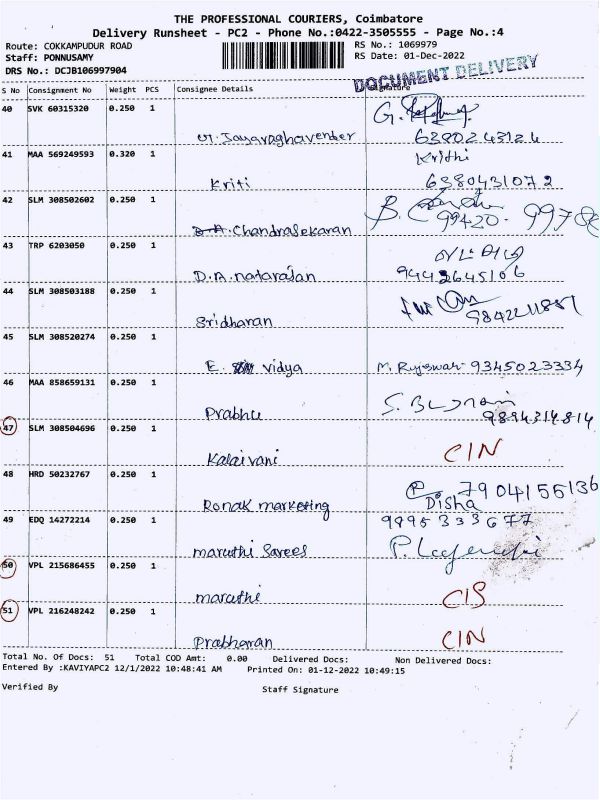 THE PROFESSIONAL COURIERS, Coimbatore
Delivery Runsheet - PC2 - Phone No.:0422-3505555 - Page No.:4
Route: COKKAMPUDUR ROAD RS No.: 1069979
Staff: PONNUSAMY RS Date: 01-Dec-2022
DRS No.: DCJB106997904
DOCUMENT DELIVERY
S No Consignment No Weight PCS Consignee Details Signature
40 SVK 60315320 0.250 1
Jayaraghavender 6380243124
41 MAA 569249593 0.320 1 Krithi
Kriti 6380431072
42 SLM 308502602 0.250 1
Chandrasekaran 99420-
43 TRP 6203050 0.250 1
D.A.natarajan 9442645106
44 SLM 308503188 0.250 1
Sridharan
45 SLM 308520274 0.250 1
E. vidya M. Rajeswari 9345023334
46 MAA 858659131 0.250 1
Prabhu 9894314814
47 SLM 308504696 0.250 1
Kalaivani CIN
48 HRD 50232767 0.250 1 7904156136
Ronak marketing Disha
49 EDQ 14272214 0.250 1 9995333677
maruthi Sarees
50 VPL 215686455 0.250 1
maruthi CIS
51 VPL 216248242 0.250 1
Prabharan CIN
Total No. Of Docs: 51 Total COD Amt: 0.00 Delivered Docs: Non Delivered Docs:
Entered By :KAVIYAPC2 12/1/2022 10:48:41 AM Printed On: 01-12-2022 10:49:15
Verified By Staff Signature